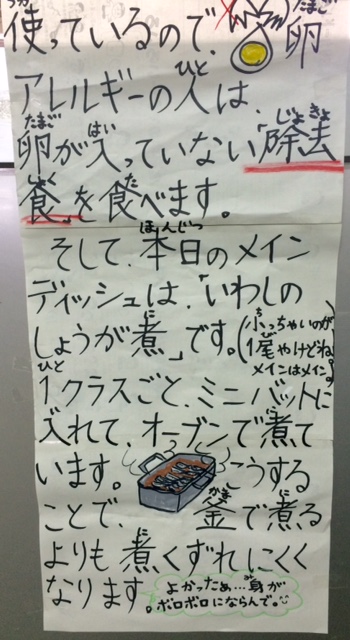 使っているので、卵
アレルギーの人は、
卵が入っていない「除去
食」を食べます。
そして、本日のメイン
ディッシュは、「いわしの
しょうが煮」です。(小っちゃいのが
1尾やけどね。
メインはメイン)
1クラスごと、ミニバットに
入れて、オーブンで煮て
います。こうする
ことで、釜で煮る
よりも煮くずれにくく
なります。よかったぁ…身が
ボロボロにならんで。